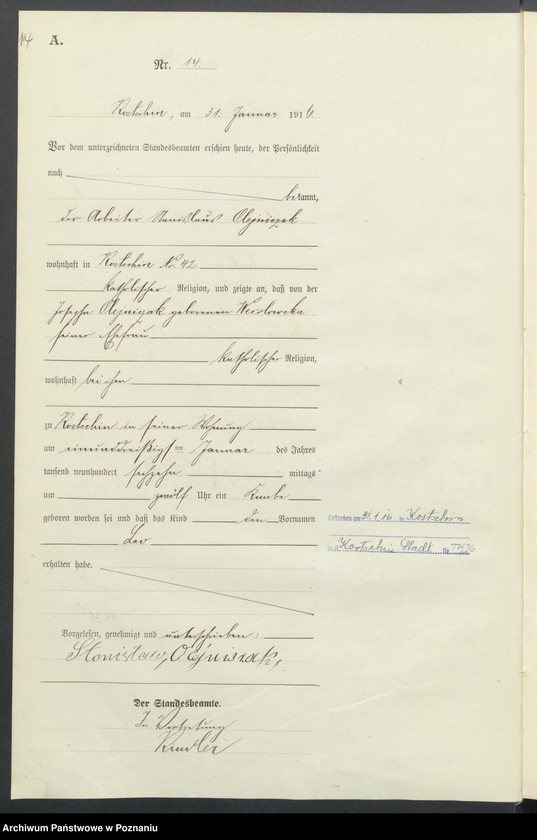 14
A.
Nr. 14.
Kostschin, am 31. Januar 1916
Vor dem unterzeichneten Standesbeamten erschien heute, der Persönlichkeit
nach
bekannt,
der Arbeiter Stanislaus Olejniczak
wohnhaft in Kostschin Nr. 42
katholischer Religion, und zeigte an, daß von der
Josepha Olejniczak geborenen
seiner Ehefrau
katholischer Religion,
wohnhaft bei ihm
zu Kostschin in seiner Wohnung
am einunddreißigsten Januar des Jahres
tausend neunhundert sechzehn mittags
um zwölf Uhr ein Knabe
geboren worden sei und daß das Kind den Vornamen
Leo
erhalten habe.
Gestorben am 31.1.16 in Kostschin
Kostschin Stadt Nr.
Vorgelesen, genehmigt und unterschrieben:
Stanisław Olejniczak
Der Standesbeamte.
In Vertretung
Archiwum Państwowe w Poznaniu